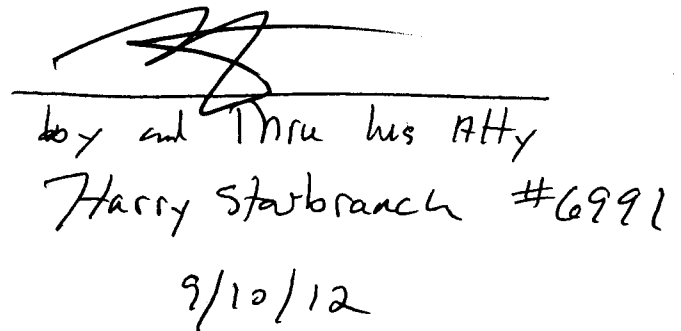 by and Thru his Atty
Harry Starbranch #6991
9/10/12